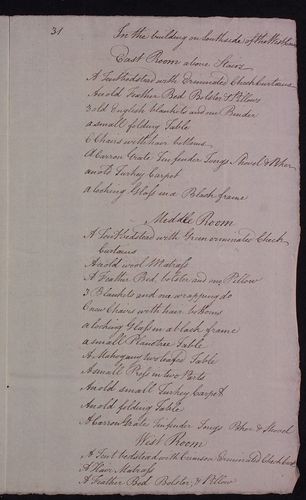 31
In the building on South side of the West
East Room above Stairs
A Tent bedstead with Erminated Check Curtains
An old Feather Bed Bolster & Pillows
3 old English blankets and one Binder
a small folding Table
6 Chairs with hair bottoms
A Carron Grate Tin fender Tongs Shovel & Poker
an old Turkey Carpet
a looking Glass in a Black frame
Middle Room
A Tent bedstead with Green erminated Check
Curtains
An old wool Matrass
A Feather Bed, bolster and one Pillow
3 Blankets and one wrapping do
6 new Chairs with hair bottoms
a looking Glass in a black frame
a small Planetree Table
A Mahogany two leafed Table
A small Press in two Parts
An old small Turkey Carpet
An old folding Table
A Carron Grate Tin fender Tongs Poker & Shovel
West Room
A Tent bedstead with Crimson Erminated Check
A Hair Matrass
A Feather Bed Bolster & Pillow